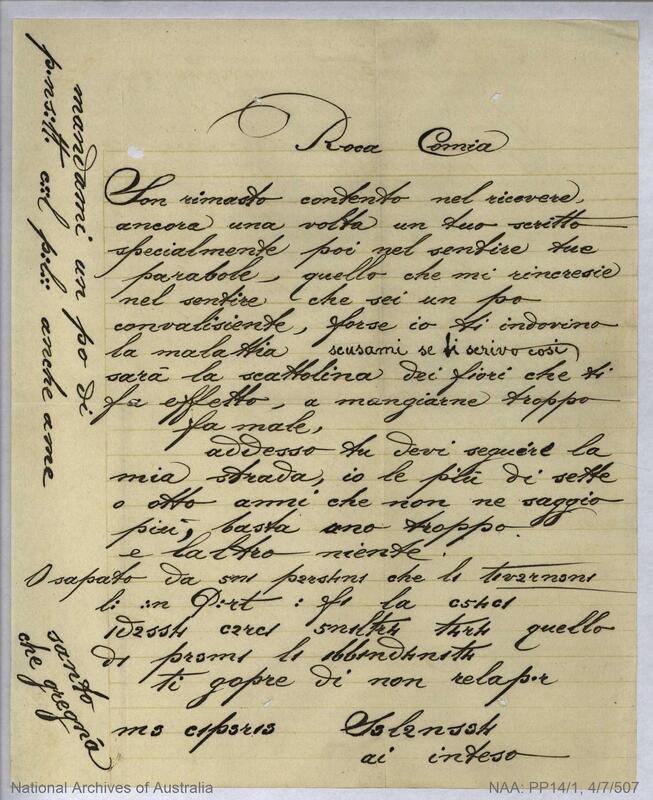 Rosa Comia
Son rimasto contento nel ricevere,
ancora una volta un tuo scritto
specialmente poi nel sentire tue
parabole, quello che mi rincresie
nel sentire che sei un po
convalisiente, forse io ti indovino
la malattia scusami se ti scrivo cosi
sarà la scattolina dei fiori che ti
fa effetto, a mangiarne troppo
fa male,
addesso tu devi seguére la
mia strada, io le più di sette
o otto anni che non ne saggio
più, basta uno troppo.
e laltro niente.
O sapato da 5n1 p2rs4n1 che l1 t1v2rn1n1
l: :n P:rt : f1 la c54c1
1d2ss4 c2rc1 5n1ltr4 t4r4 quello
d1 pr3m1 l1 1bb1nd4n1t4
ti gopre di non relap.r
m3 c1p3r13 S3l2n5s4
ai inteso
mandami un po di
p.ns:tt. c:l p:l:: anche ame
santo
che gregna
National Archives of Australia NAA: PP14/1, 4/7/507